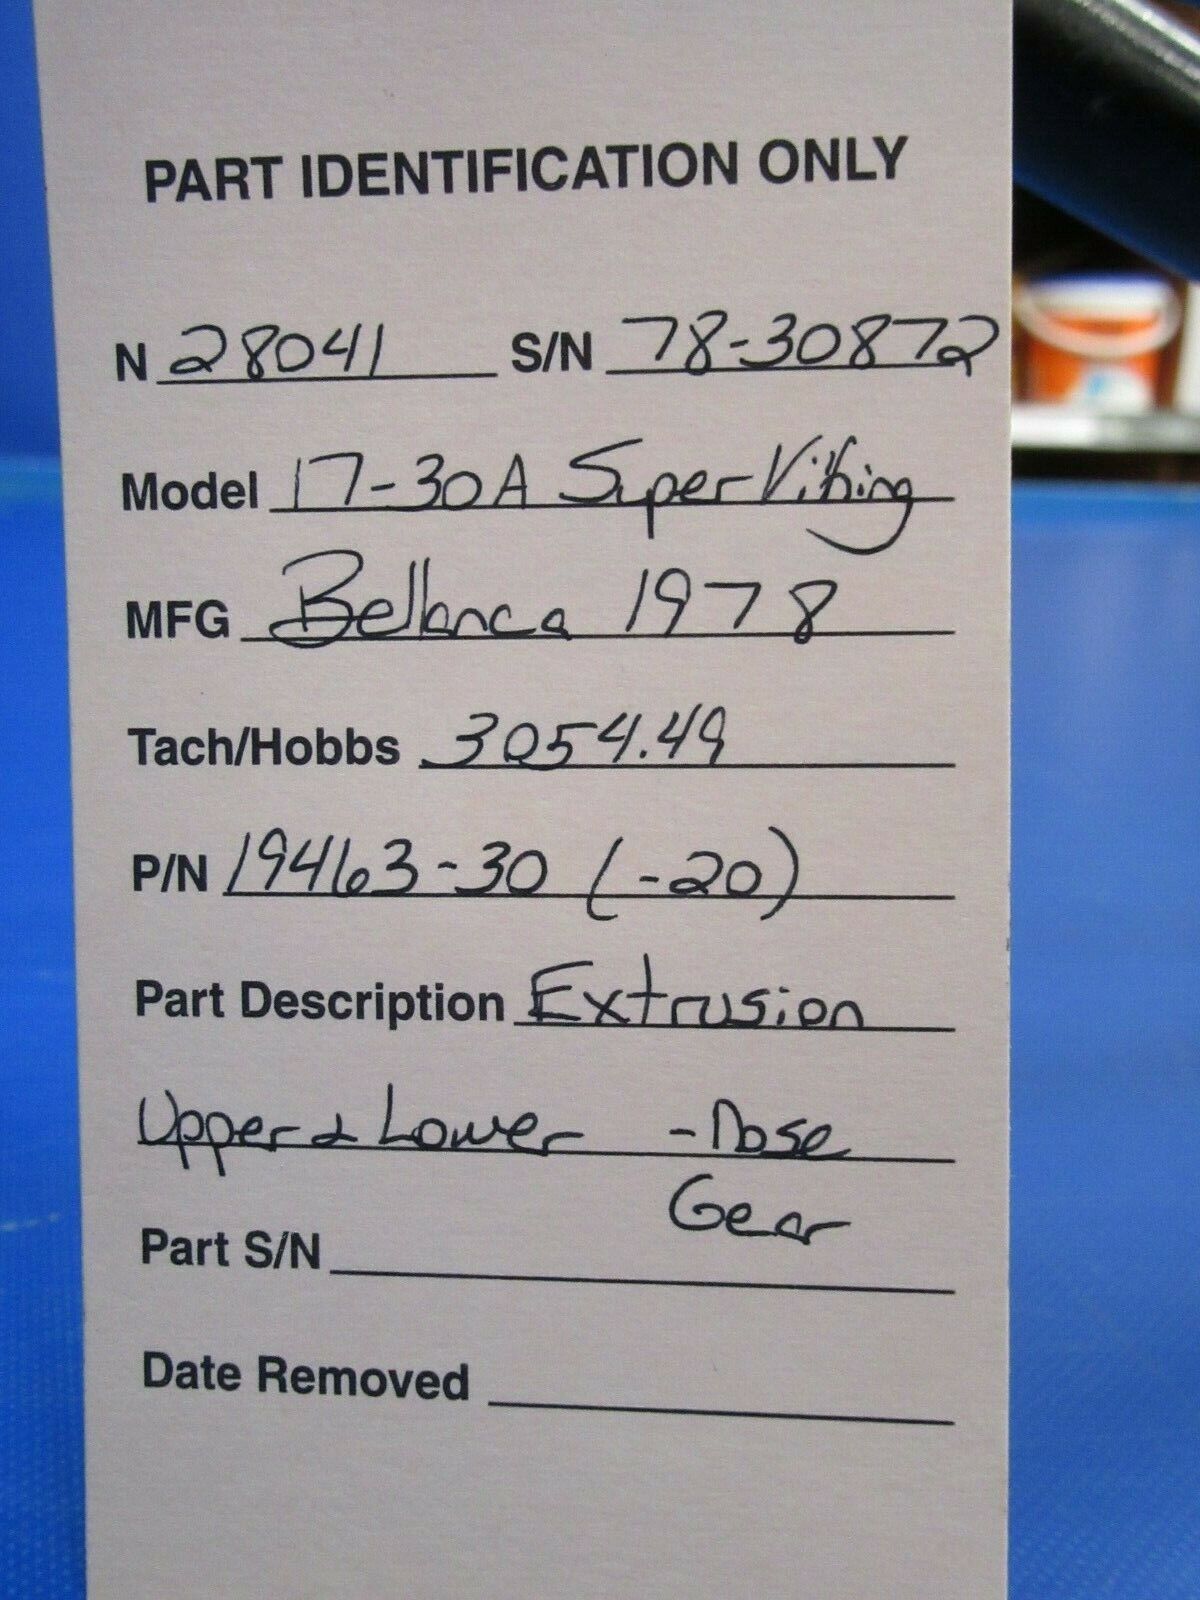 PART IDENTIFICATION ONLY
N 28041 S/N 78-30872
Model 17-30A Super Viking
MFG Bellanca 1978
Tach/Hobbs 3054.49
P/N 19463-30 (-20)
Part Description Extrusion
Upper & Lower - Nose
Gear
Part S/N
Date Removed